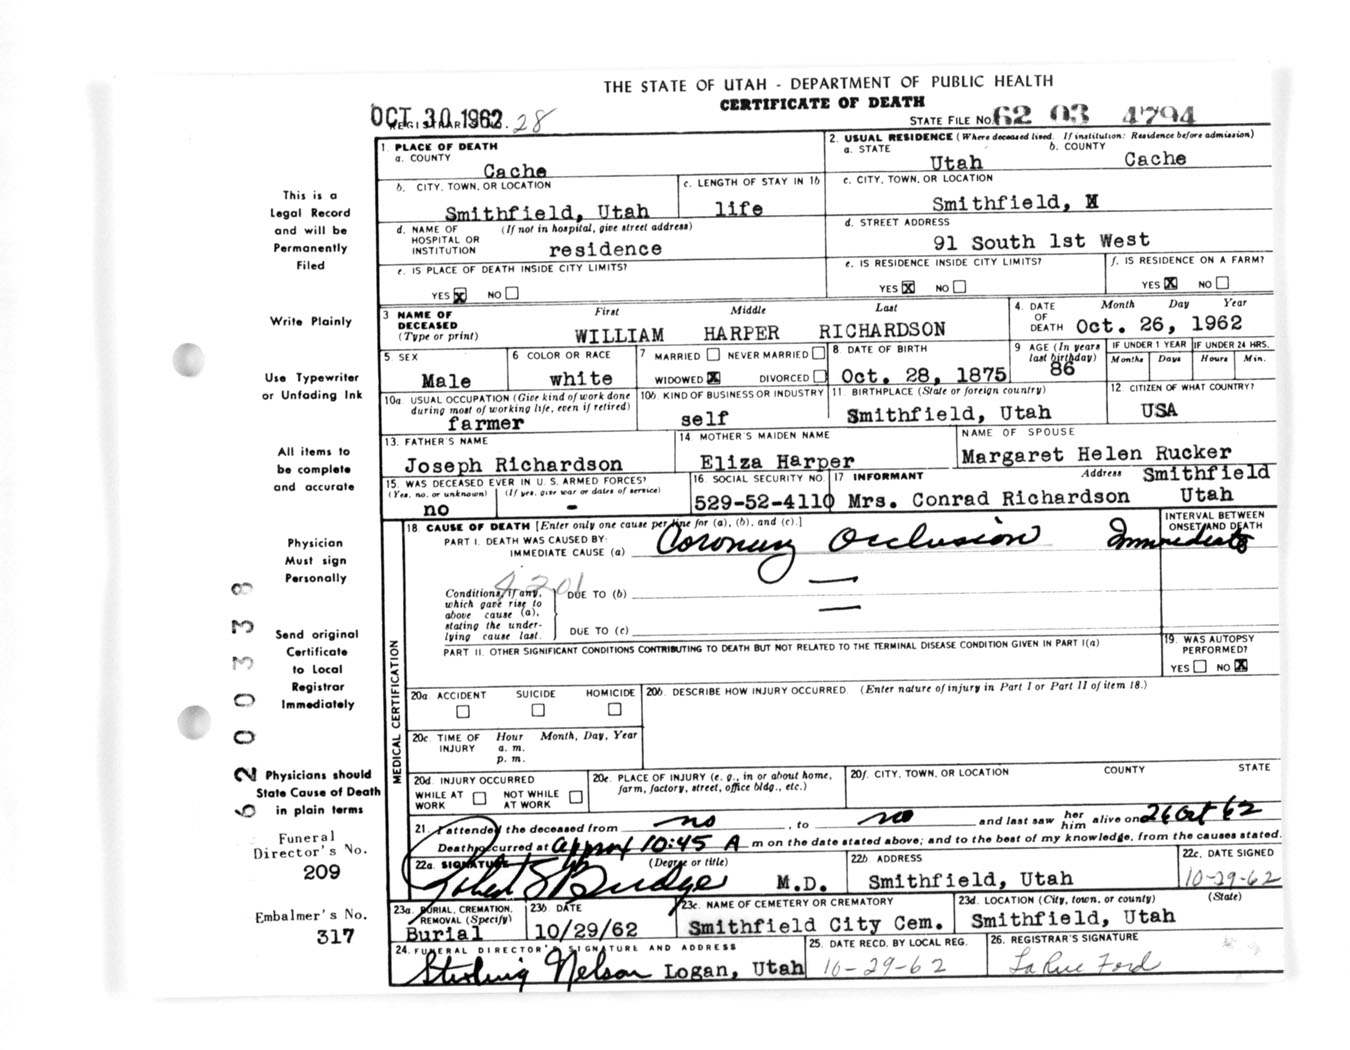 THE STATE OF UTAH - DEPARTMENT OF PUBLIC HEALTH
CERTIFICATE OF DEATH
OCT 30 1962
REGISTRAR'S NO. 28
STATE FILE NO. 62 03 4794
This is a
Legal Record
and will be
Permanently
Filed
Write Plainly
Use Typewriter
or Unfading Ink
All items to
be complete
and accurate
Physician
Must sign
Personally
Send original
Certificate
to Local
Registrar
Immediately
Physicians should
State Cause of Death
in plain terms
Funeral
Director's No.
209
Embalmer's No.
317
1. PLACE OF DEATH
a. COUNTY
Cache
2. USUAL RESIDENCE (Where deceased lived. If institution: Residence before admission)
a. STATE b. COUNTY
Utah Cache
b. CITY, TOWN, OR LOCATION
Smithfield, Utah
c. LENGTH OF STAY IN 1b
life
c. CITY, TOWN, OR LOCATION
Smithfield,
d. NAME OF (If not in hospital, give street address)
HOSPITAL OR
INSTITUTION residence
d. STREET ADDRESS
91 South 1st West
e. IS PLACE OF DEATH INSIDE CITY LIMITS?
YES X NO
e. IS RESIDENCE INSIDE CITY LIMITS?
YES X NO
f. IS RESIDENCE ON A FARM?
YES X NO
3 NAME OF First Middle Last
DECEASED
(Type or print) WILLIAM HARPER RICHARDSON
4. DATE Month Day Year
OF
DEATH Oct. 26, 1962
5. SEX
Male
6 COLOR OR RACE
white
7 MARRIED NEVER MARRIED
WIDOWED X DIVORCED
8 DATE OF BIRTH
Oct. 28, 1875
9 AGE (In years
last birthday)
86
IF UNDER 1 YEAR IF UNDER 24 HRS.
Months Days Hours Min.
10a. USUAL OCCUPATION (Give kind of work done
during most of working life, even if retired)
farmer
10b. KIND OF BUSINESS OR INDUSTRY
self
11. BIRTHPLACE (State or foreign country)
Smithfield, Utah
12. CITIZEN OF WHAT COUNTRY?
USA
13. FATHER'S NAME
Joseph Richardson
14 MOTHER'S MAIDEN NAME
Eliza Harper
NAME OF SPOUSE
Margaret Helen Rucker
15. WAS DECEASED EVER IN U. S. ARMED FORCES?
(Yes, no, or unknown) (If yes, give war or dates of service)
no -
16. SOCIAL SECURITY NO.
529-52-4110
17 INFORMANT Address Smithfield
Mrs. Conrad Richardson Utah
MEDICAL CERTIFICATION
18 CAUSE OF DEATH [Enter only one cause per line for (a), (b), and (c).]
PART I. DEATH WAS CAUSED BY:
IMMEDIATE CAUSE (a) Coronary Occlusion
INTERVAL BETWEEN
ONSET AND DEATH
Immediate
4201
Conditions, if any,
which gave rise to
above cause (a),
stating the under-
lying cause last.
DUE TO (b) —
DUE TO (c) —
PART II. OTHER SIGNIFICANT CONDITIONS CONTRIBUTING TO DEATH BUT NOT RELATED TO THE TERMINAL DISEASE CONDITION GIVEN IN PART I(a)
19. WAS AUTOPSY
PERFORMED?
YES NO X
20a. ACCIDENT SUICIDE HOMICIDE
20b. DESCRIBE HOW INJURY OCCURRED. (Enter nature of injury in Part I or Part II of item 18.)
20c. TIME OF Hour Month, Day, Year
INJURY a. m.
p. m.
20d. INJURY OCCURRED
WHILE AT NOT WHILE
WORK AT WORK
20e. PLACE OF INJURY (e. g., in or about home,
farm, factory, street, office bldg., etc.)
20f. CITY, TOWN, OR LOCATION COUNTY STATE
21. I attended the deceased from no , to no and last saw her him alive on 26 Oct 62
Death occurred at approx 10:45 A m on the date stated above; and to the best of my knowledge, from the causes stated.
22a. SIGNATURE (Degree or title)
Budge M.D.
22b. ADDRESS
Smithfield, Utah
22c. DATE SIGNED
10-29-62
23a. BURIAL, CREMATION,
REMOVAL (Specify)
Burial
23b. DATE
10/29/62
23c. NAME OF CEMETERY OR CREMATORY
Smithfield City Cem.
23d. LOCATION (City, town, or county) (State)
Smithfield, Utah
24. FUNERAL DIRECTOR'S SIGNATURE AND ADDRESS
Sterling Nelson Logan, Utah
25. DATE RECD. BY LOCAL REG.
10-29-62
26. REGISTRAR'S SIGNATURE
LaRue Ford